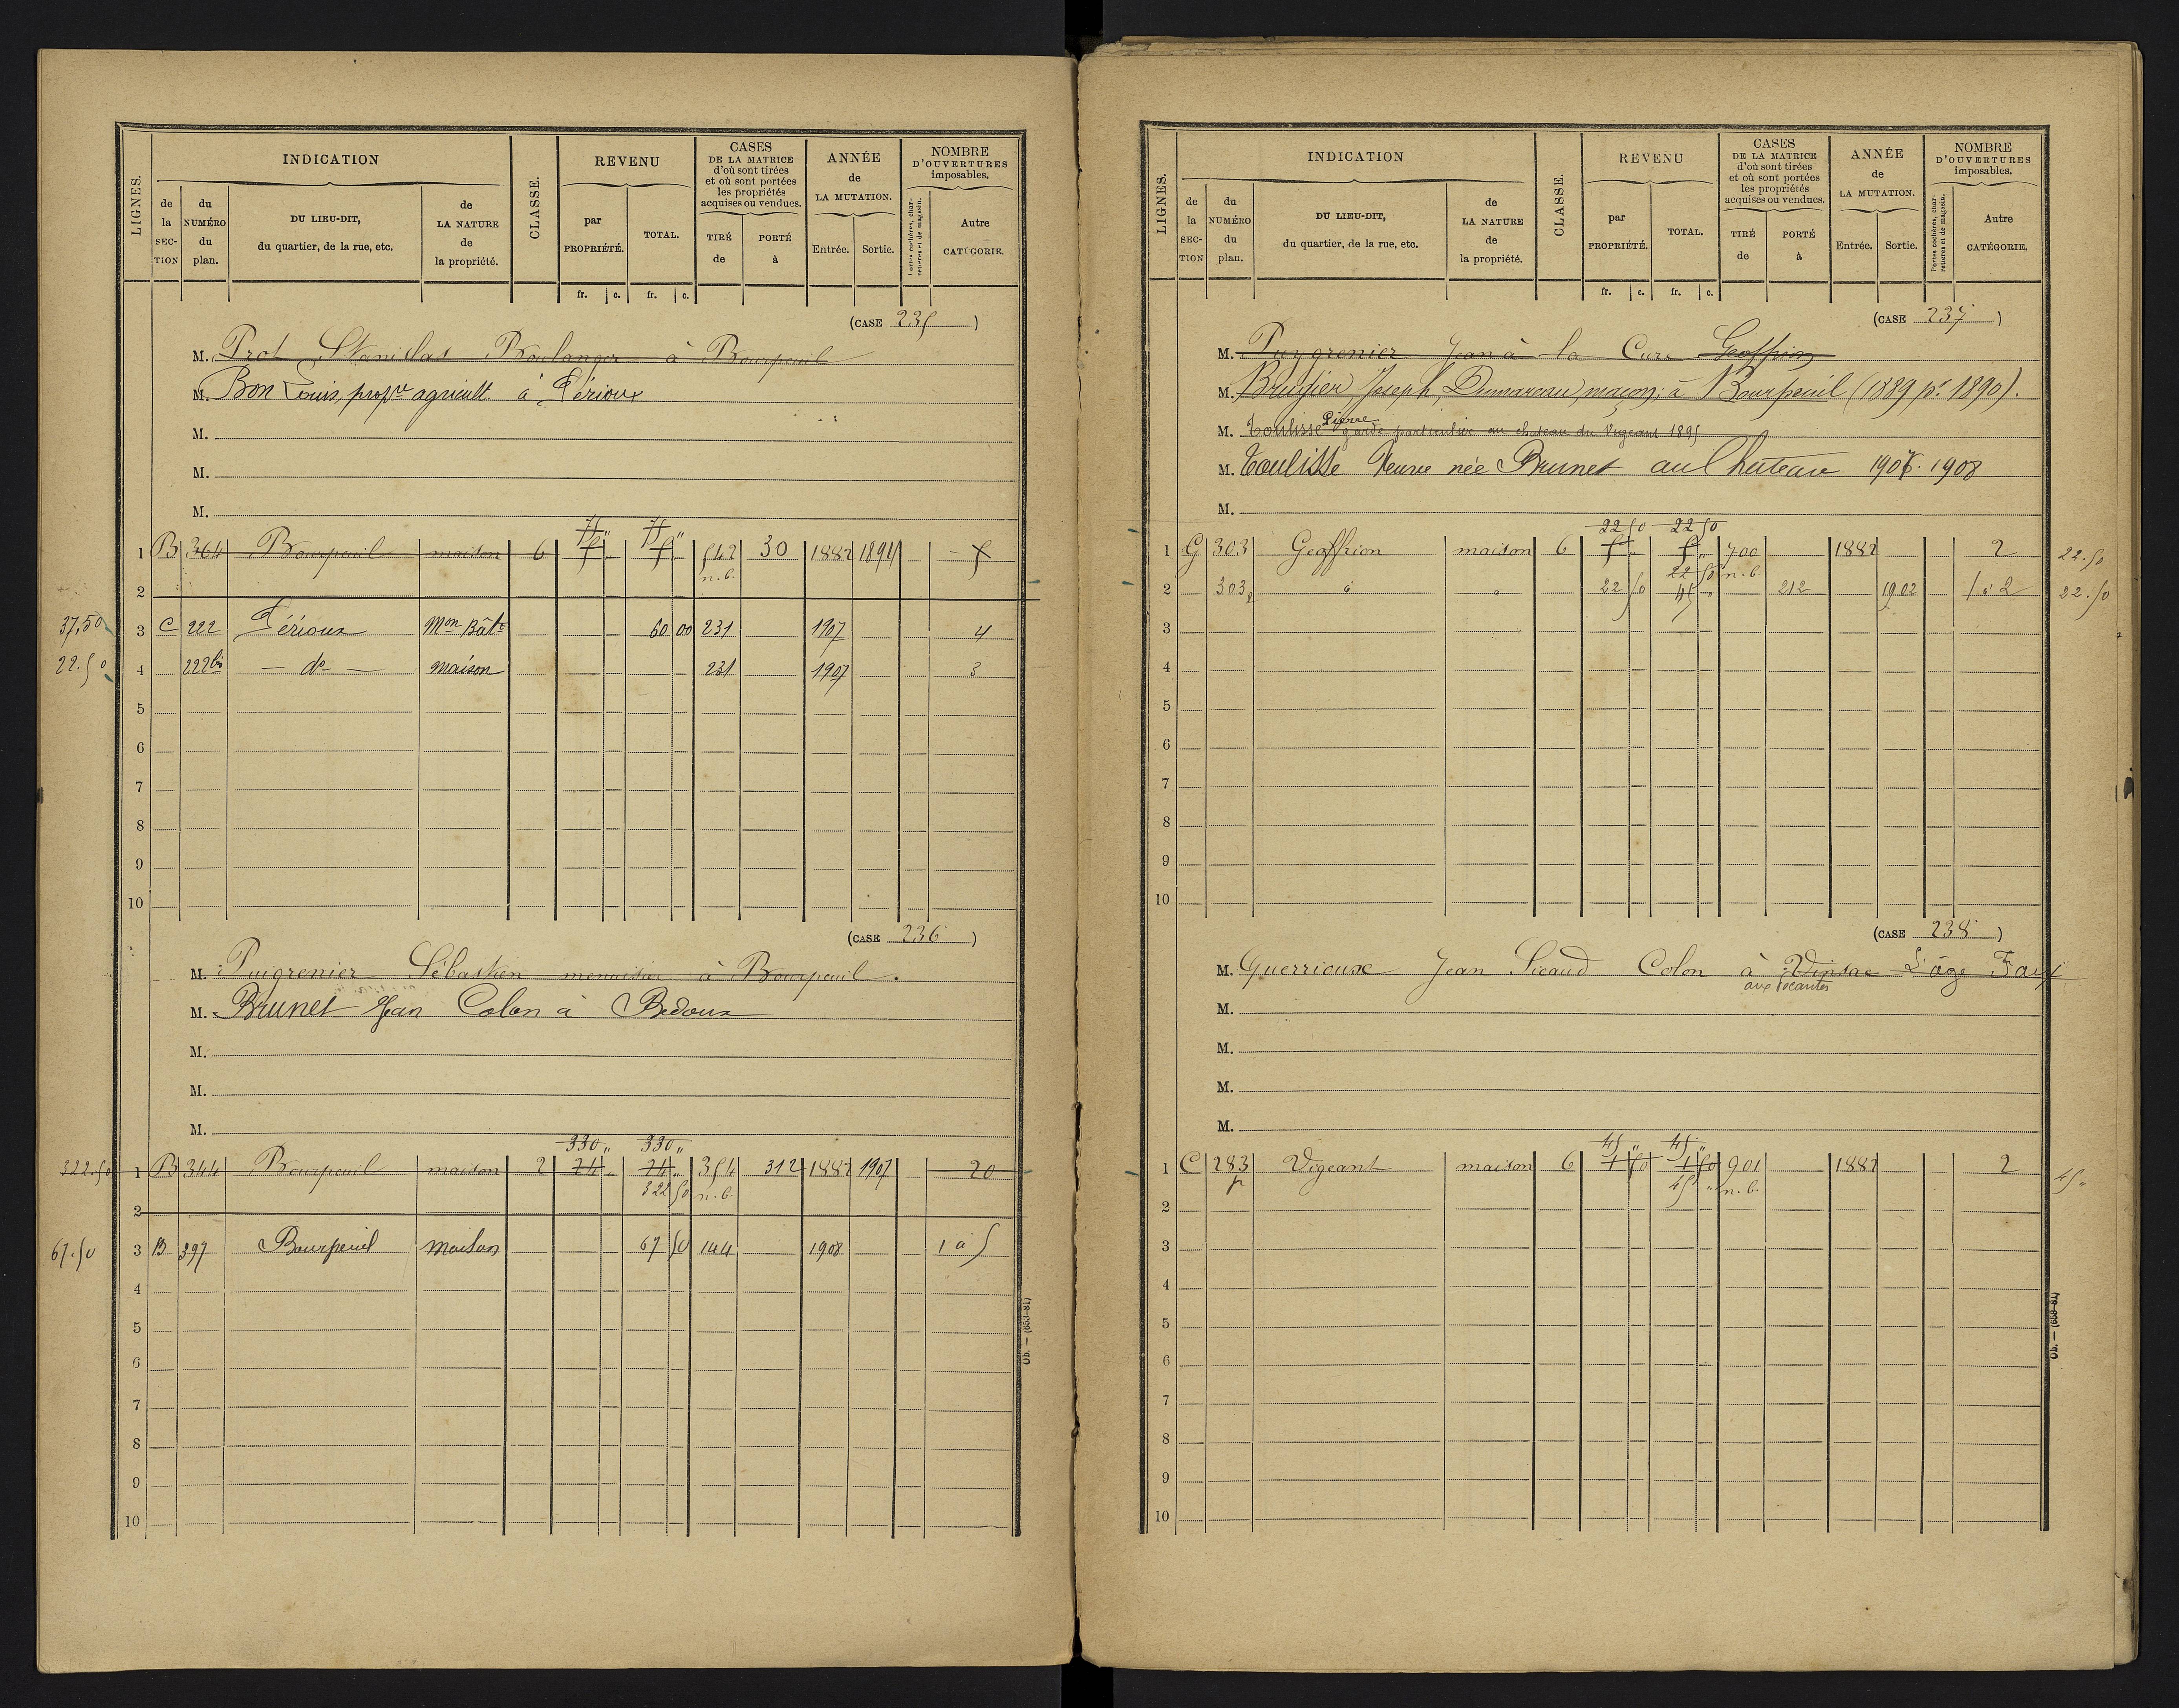 LIGNES. INDICATION CLASSE. REVENU CASES DE LA MATRICE d'où sont tirées et où sont portées les propriétés acquises ou vendues. ANNÉE de LA MUTATION. NOMBRE D'OUVERTURES imposables.
de la SECTION du NUMÉRO du plan. DU LIEU-DIT, du quartier, de la rue, etc. de LA NATURE de la propriété. par PROPRIÉTÉ. TOTAL. TIRÉ de PORTÉ à Entrée. Sortie. Portes cochères, charretières et de magasin. Autre CATÉGORIE.
fr. c. fr. c.
(CASE 235)
M. Prot Stanislas Boulanger à Bourpeuil
M. Bon Louis, propre agricult. à Périoux
M.
M.
M.
75 " 75 "
1 B 364 Bourpeuil maison 6 542 30 1882 1894 5
n.b.
2
37,50 3 C 222 Périoux Mon Bâtt 60 00 231 1907 4
22.50 4 222bis do maison 231 1907 3
5
6
7
8
9
10
(CASE 236)
M. Puigrenier Sébastien menuisier à Bourpeuil.
M. Brunet Jean Colon à Bedoux
M.
M.
M.
330 " 330 "
322.50 1 B 344 Bourpeuil maison 2 24 " 24 " 354 312 1882 1907 20
322 50 n.b.
2
67.50 3 B 397 Bourpeuil maison 67 50 144 1908 1 à 5
4
5
6
7
8
9
10
Ob. — (653-81)
LIGNES. INDICATION CLASSE. REVENU CASES DE LA MATRICE d'où sont tirées et où sont portées les propriétés acquises ou vendues. ANNÉE de LA MUTATION. NOMBRE D'OUVERTURES imposables.
de la SECTION du NUMÉRO du plan. DU LIEU-DIT, du quartier, de la rue, etc. de LA NATURE de la propriété. par PROPRIÉTÉ. TOTAL. TIRÉ de PORTÉ à Entrée. Sortie. Portes cochères, charretières et de magasin. Autre CATÉGORIE.
fr. c. fr. c.
(CASE 237)
M. Puygrenier Jean à la Cure Geoffrion
M. Brugier Joseph, Dumareau, maçon, à Bourpeuil (1889 pr 1890).
M. Toulisse Pierre garde particulier au chateau du Vigeant 1895
M. Toulisse Veuve née Brunet au Chateau 1907. 1908
M.
22 50 22 50
1 G 303 Geoffrion maison 6 5 " 5 " 700 1882 2 22.50
22 50 n.b.
2 303p " " 22 50 45 " 212 1902 1 à 2 22.50
3
4
5
6
7
8
9
10
(CASE 238)
M. Guerrieuse Jean Sicaud Colon à Vinsac L'âge Fay
aux Ecantes
M.
M.
M.
M.
45 " 45 "
1 C 283 Vigeant maison 6 1 50 1 50 901 1882 2
p 45 " n.b. 45 "
2
3
4
5
6
7
8
9
10
Ob. — (653-81)